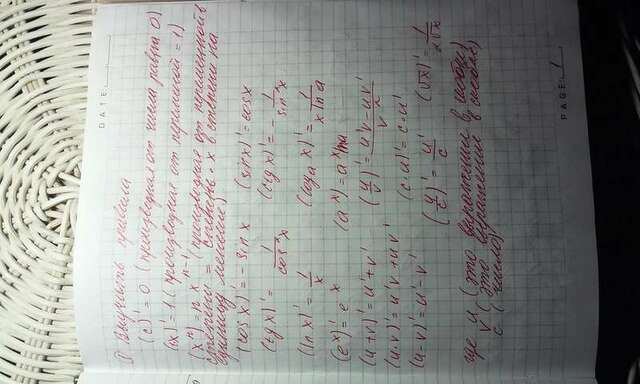 DATE:
I Выучить правила
(c)' = 0 (производная от числа равна 0)
(x)' = 1 (производная от переменой = 1)
(xⁿ) = n xⁿ⁻¹ (производная от переменной в
степени = степень · x в степени на
единицу меньше)
(cos x)' = - sin x (sin x)' = cos x
(tg x)' = 1/cos²x (ctg x)' = - 1/sin²x
(ln x)' = 1/x (log a x)' = 1/x ln a
(eˣ)' = eˣ (aˣ)' = aˣ ln a
(u + v)' = u' + v' (u/v)' = u'v - uv'/v²
(u · v)' = u'v + uv' (c · u)' = c · u'
(u - v)' = u' - v' (u/c)' = u'/c (√x)' = 1/2√x
где u (это выражение в скобке)
v (это выражение в скобке)
c (число)
PAGE: 1